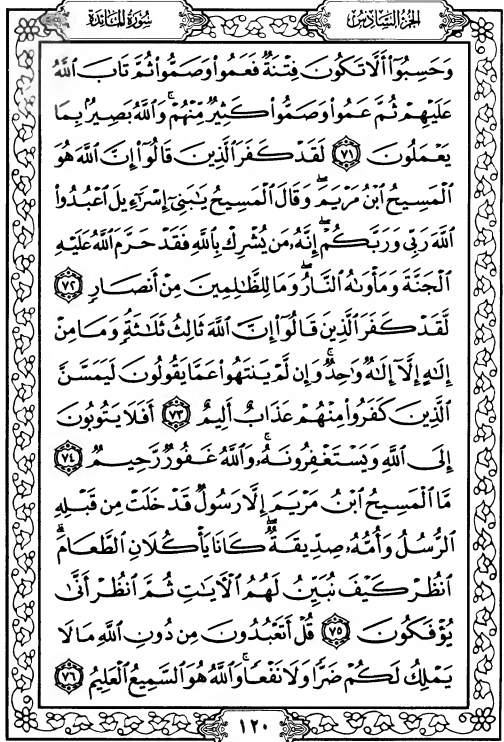 سُورَةُ المَائِدَة
الجُزْءُ السَّادِسُ
وَحَسِبُوٓا۟ أَلَّا تَكُونَ فِتْنَةٌ فَعَمُوا۟ وَصَمُّوا۟ ثُمَّ تَابَ ٱللَّهُ
عَلَيْهِمْ ثُمَّ عَمُوا۟ وَصَمُّوا۟ كَثِيرٌ مِّنْهُمْ ۚ وَٱللَّهُ بَصِيرٌۢ بِمَا
يَعْمَلُونَ ٧١ لَقَدْ كَفَرَ ٱلَّذِينَ قَالُوٓا۟ إِنَّ ٱللَّهَ هُوَ
ٱلْمَسِيحُ ٱبْنُ مَرْيَمَ ۖ وَقَالَ ٱلْمَسِيحُ يَٰبَنِىٓ إِسْرَٰٓءِيلَ ٱعْبُدُوا۟
ٱللَّهَ رَبِّى وَرَبَّكُمْ ۖ إِنَّهُۥ مَن يُشْرِكْ بِٱللَّهِ فَقَدْ حَرَّمَ ٱللَّهُ عَلَيْهِ
ٱلْجَنَّةَ وَمَأْوَىٰهُ ٱلنَّارُ ۖ وَمَا لِلظَّٰلِمِينَ مِنْ أَنصَارٍ ٧٢
لَّقَدْ كَفَرَ ٱلَّذِينَ قَالُوٓا۟ إِنَّ ٱللَّهَ ثَالِثُ ثَلَٰثَةٍ ۘ وَمَا مِنْ
إِلَٰهٍ إِلَّآ إِلَٰهٌ وَٰحِدٌ ۚ وَإِن لَّمْ يَنتَهُوا۟ عَمَّا يَقُولُونَ لَيَمَسَّنَّ
ٱلَّذِينَ كَفَرُوا۟ مِنْهُمْ عَذَابٌ أَلِيمٌ ٧٣ أَفَلَا يَتُوبُونَ
إِلَى ٱللَّهِ وَيَسْتَغْفِرُونَهُۥ ۚ وَٱللَّهُ غَفُورٌ رَّحِيمٌ ٧٤
مَّا ٱلْمَسِيحُ ٱبْنُ مَرْيَمَ إِلَّا رَسُولٌ قَدْ خَلَتْ مِن قَبْلِهِ
ٱلرُّسُلُ وَأُمُّهُۥ صِدِّيقَةٌ ۖ كَانَا يَأْكُلَانِ ٱلطَّعَامَ ۗ
ٱنظُرْ كَيْفَ نُبَيِّنُ لَهُمُ ٱلْءَايَٰتِ ثُمَّ ٱنظُرْ أَنَّىٰ
يُؤْفَكُونَ ٧٥ قُلْ أَتَعْبُدُونَ مِن دُونِ ٱللَّهِ مَا لَا
يَمْلِكُ لَكُمْ ضَرًّا وَلَا نَفْعًا ۚ وَٱللَّهُ هُوَ ٱلسَّمِيعُ ٱلْعَلِيمُ ٧٦
١٢٠